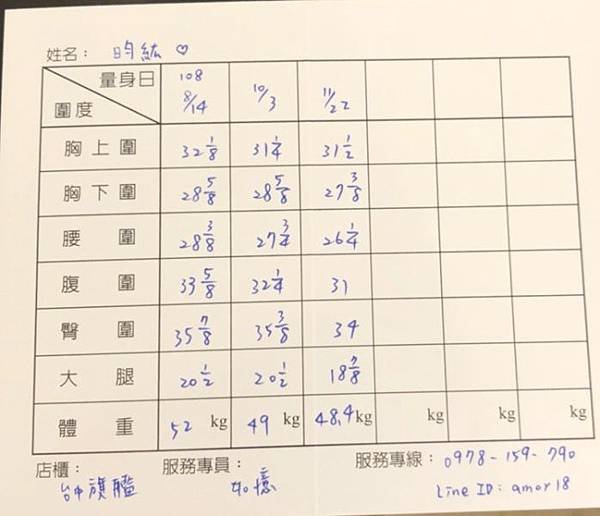 姓名： 昀紘 ♡
量身日 圍度 108 8/14 10/3 11/22
胸上圍 32 1/8 31 1/4 31 1/2
胸下圍 28 5/8 28 5/8 27 3/8
腰圍 28 3/8 27 3/4 26 1/4
腹圍 33 5/8 32 1/4 31
臀圍 35 7/8 35 3/8 34
大腿 20 1/2 20 1/2 18 7/8
體重 52 kg 49 kg 48.4 kg kg kg kg
店櫃： 服務專員： 服務專線： 0978-159-790
台中旗艦 如憶 Line ID: amor18